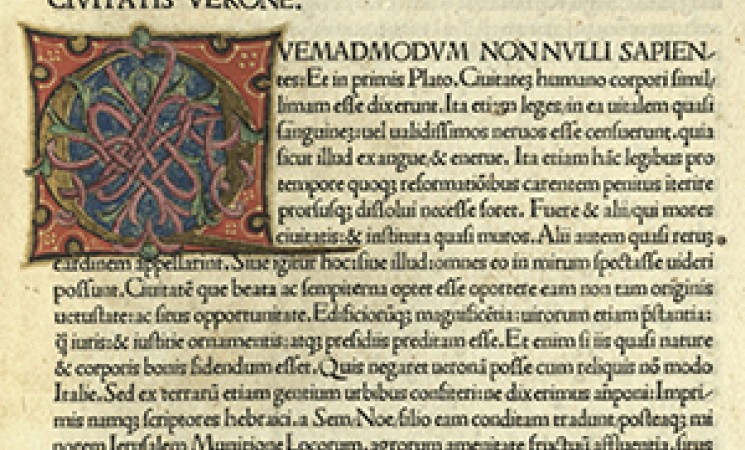 CIVITATIS VERONE.
QVEMADMODVM NON NVLLI SAPIEN/
tes: Et in primis Plato. Ciuitateʒ humano corpori simil/
limam esse dixerunt. Ita etiam leges/in ea uitalem quasi
sanguineʒ: uel ualidissimos neruos esse censuerunt, quia
sicut illud exangue,& enerue. Ita etiam hãc legibus pro
tempore quoqʒ reformatiõibus carentem penitus iterire
prorsusqʒ dissolui necesse foret. Fuere & alii, qui mores
ciuitatis: & instituta quasi muros. Alii autem quasi reruʒ
cardinem appellarint. Siue igitur hoc: siue illud: omnes eo in mirum spectasse uideri
possunt. Ciuitatẽ que beata ac sempiterna optet esse oportere eam non tam originis
uetustate: ac situs opportunitate. Edificiorũqʒ magnificẽtia: uirorum etiam p̃stantia:
q̃ iuris: & iustitie ornamentis: atqʒ presidiis preditam esse. Et enim si iis quasi nature
& corporis bonis fidendum esset. Quis negaret ueronã posse cum reliquis nõ modo
Italie. Sed ex terrarũ etiam gentium urbibus confiteri: ne dixerimus añponi: Impri/
mis namqʒ scriptores hebraici. a Sem/Noe/filio eam conditam tradunt/posteaqʒ mi
norem Ierusalem. Munitione Locorum, agrorum amenitate fructuũ affluentia, situs